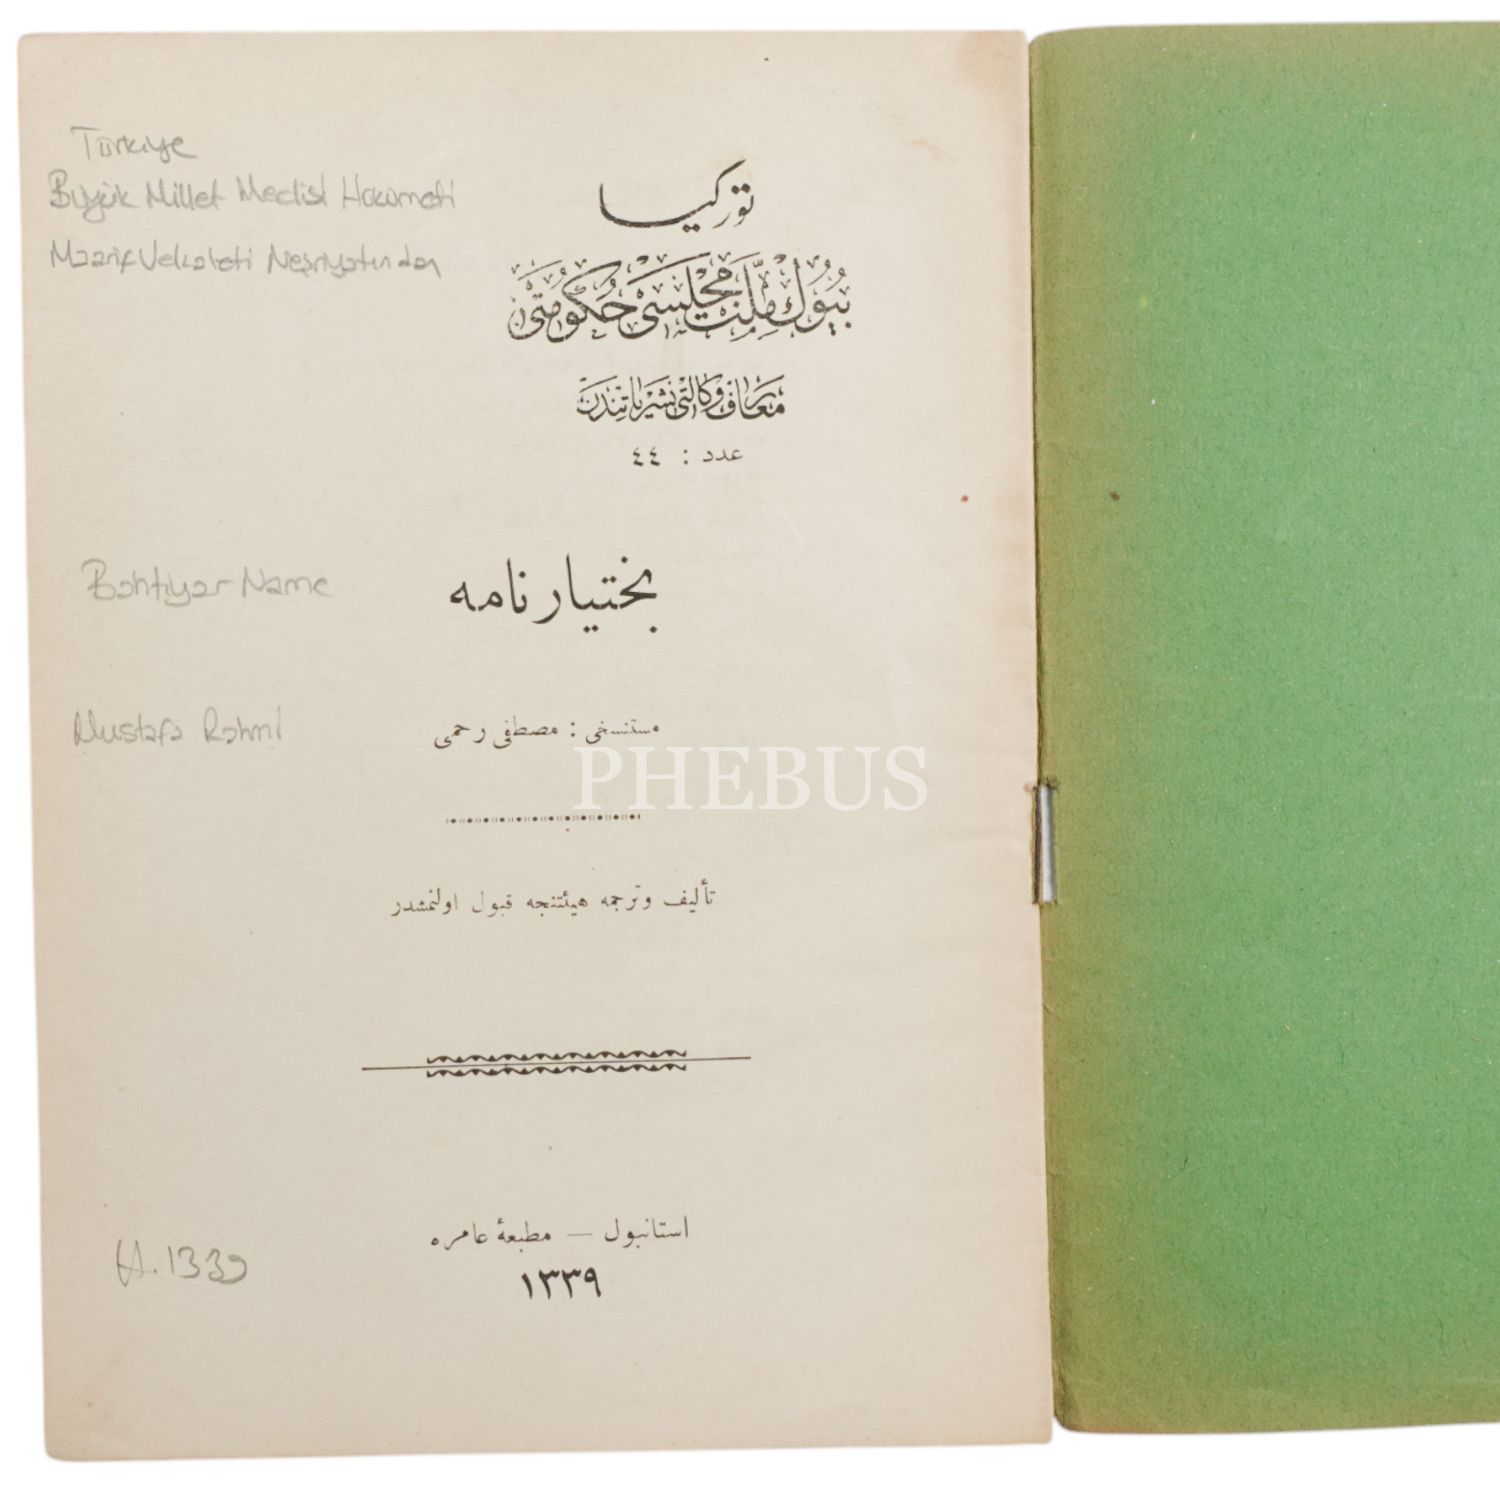 توركيا
Türkiye
بُيُوك مِلّت مَجْلِسى حُكُومتى
Büyük Millet Meclisi Hükümeti
معارف وكالتى نشرياتندن
Maarif Vekaleti Neşriyatından
عدد : ٤٤
بختيار نامه
Bahtiyar Name
مستنسخى : مصطفى رحمى
Mustafa Rahmi
PHEBUS
تأليف وترجمه هيئتنجه قبول اولنمشدر
استانبول — مطبعهٔ عامره
١٣٣٩
H. 1339